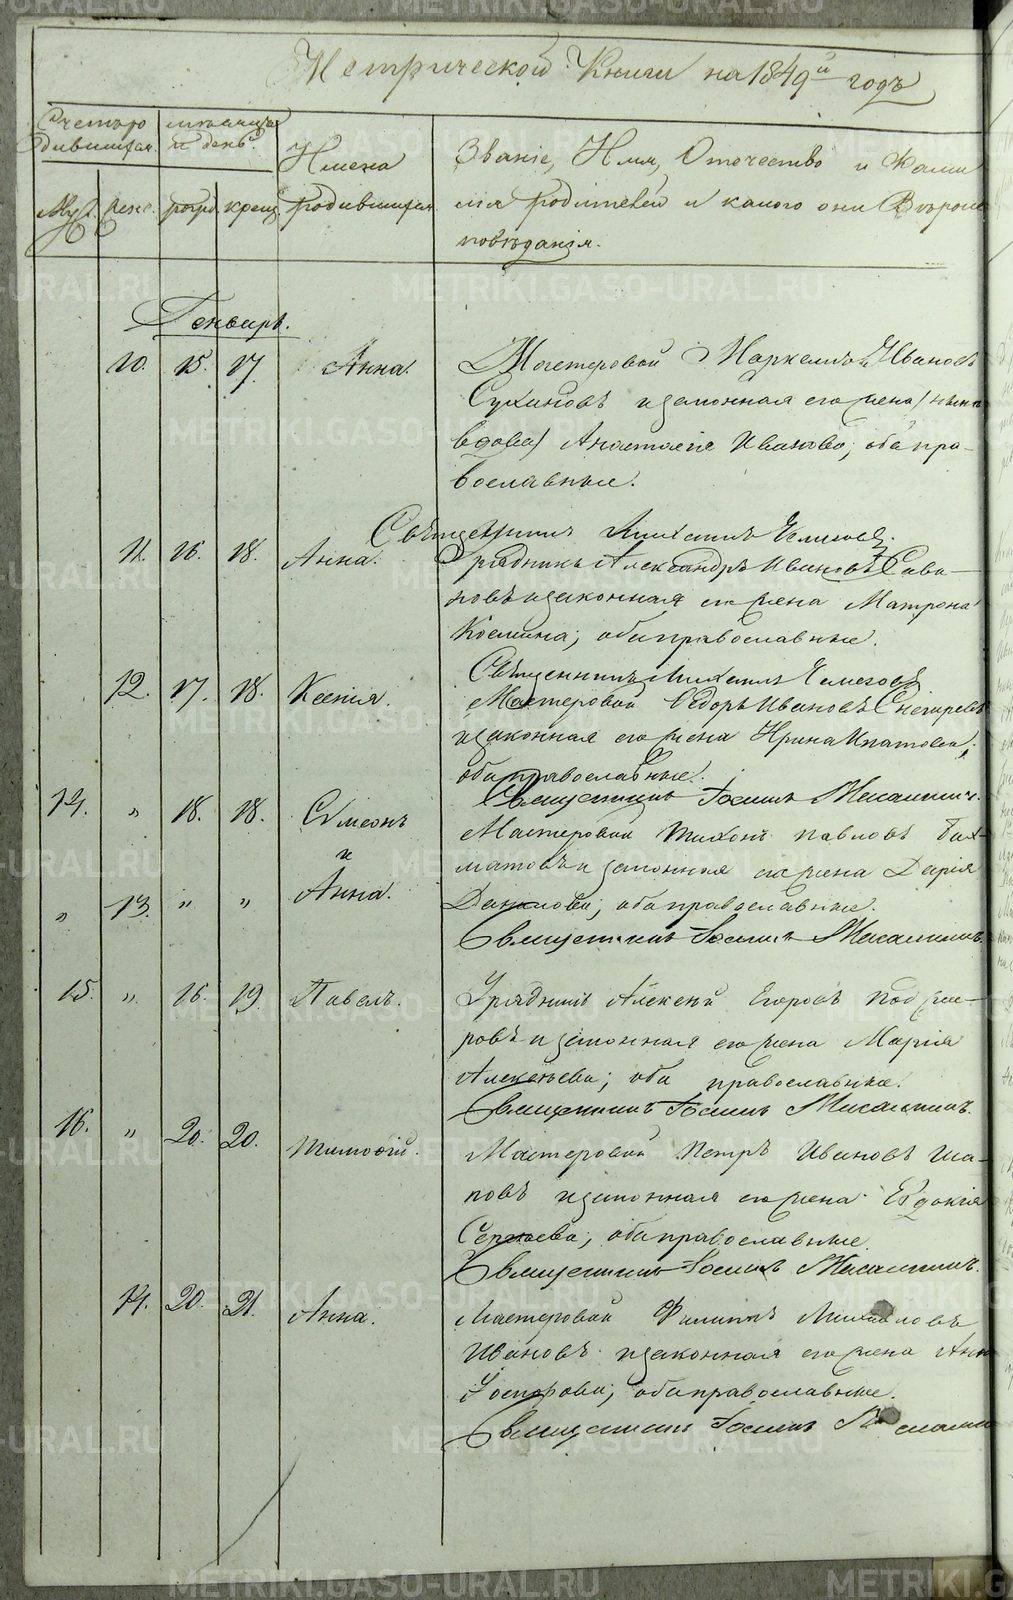 Метрической Книги на 1849й годъ
Счетъ ро месяцъ
дившихся. и день.
Имена
Званіе, Имя, Отечество и Фами
Муж. женс. рожд. крещ. родившихся
лія родителей и какого они Вѣроис
повѣданія.
Генварь.
10. 15. 17. Анна. Мастеровой Маркеллъ Ивановъ
Сухановъ и законная его жена /нынѣ
вдова/ Анастасія Иванова; оба пра-
вославные.
Священникъ Михаилъ
11. 16. 18. Анна. Урядникъ Александръ Ивановъ Сава-
новъ и законная его жена Матрона
Космина; оба православные.
Священникъ Михаилъ
12. 17. 18. Ксенія. Мастеровой Ѳедоръ Ивановъ Снегиревъ
и законная его жена Ирина Ипатова;
оба православные.
Священникъ Іоаннъ
14. " 18. 18. Симеонъ Мастеровой Тихонъ Павловъ Бах-
матовъ и законная его жена Дарія
и
" 13. " " Анна. Данилова; оба православные.
Священникъ Іоаннъ
15. " 16. 19. Павелъ. Урядникъ Алексей Егоровъ Подже-
ровъ и законная его жена Марія
Алексѣева; оба православные.
Священникъ Іоаннъ
16. " 20. 20. Тимоѳій. Мастеровой Петръ Ивановъ Ша-
повъ и законная его жена Евдокія
Сергѣева; оба православные
Священникъ Іоаннъ
14. 20. 21. Анна. Мастеровой Филиппъ Михайловъ
Ивановъ и законная его жена Анна
оба православные.
Священникъ Іоаннъ
METRIKI.GASO-URAL.RU